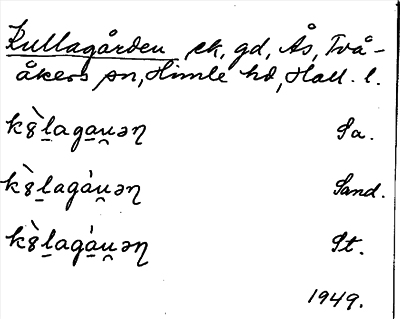 Kullagården ek, gd, Ås, Två-
åkers sn, Himle hd, Hall. l.
kȣ̀l̠aga̠u̯əɳ Sa.
kȣ̀l̠agá̠u̯əɳ Sand.
kȣ̀l̠agá̠u̯əɳ St.
1949.